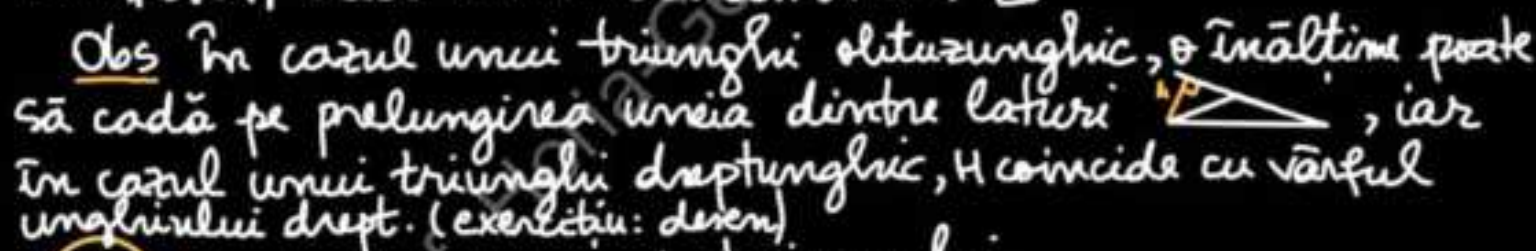 Obs În cazul unui triunghi obtuzunghic, o înălțime poate
să cadă pe prelungirea uneia dintre laturi h , iar
în cazul unui triunghi dreptunghic, H coincide cu vârful
unghiului drept. (exercițiu: desen)